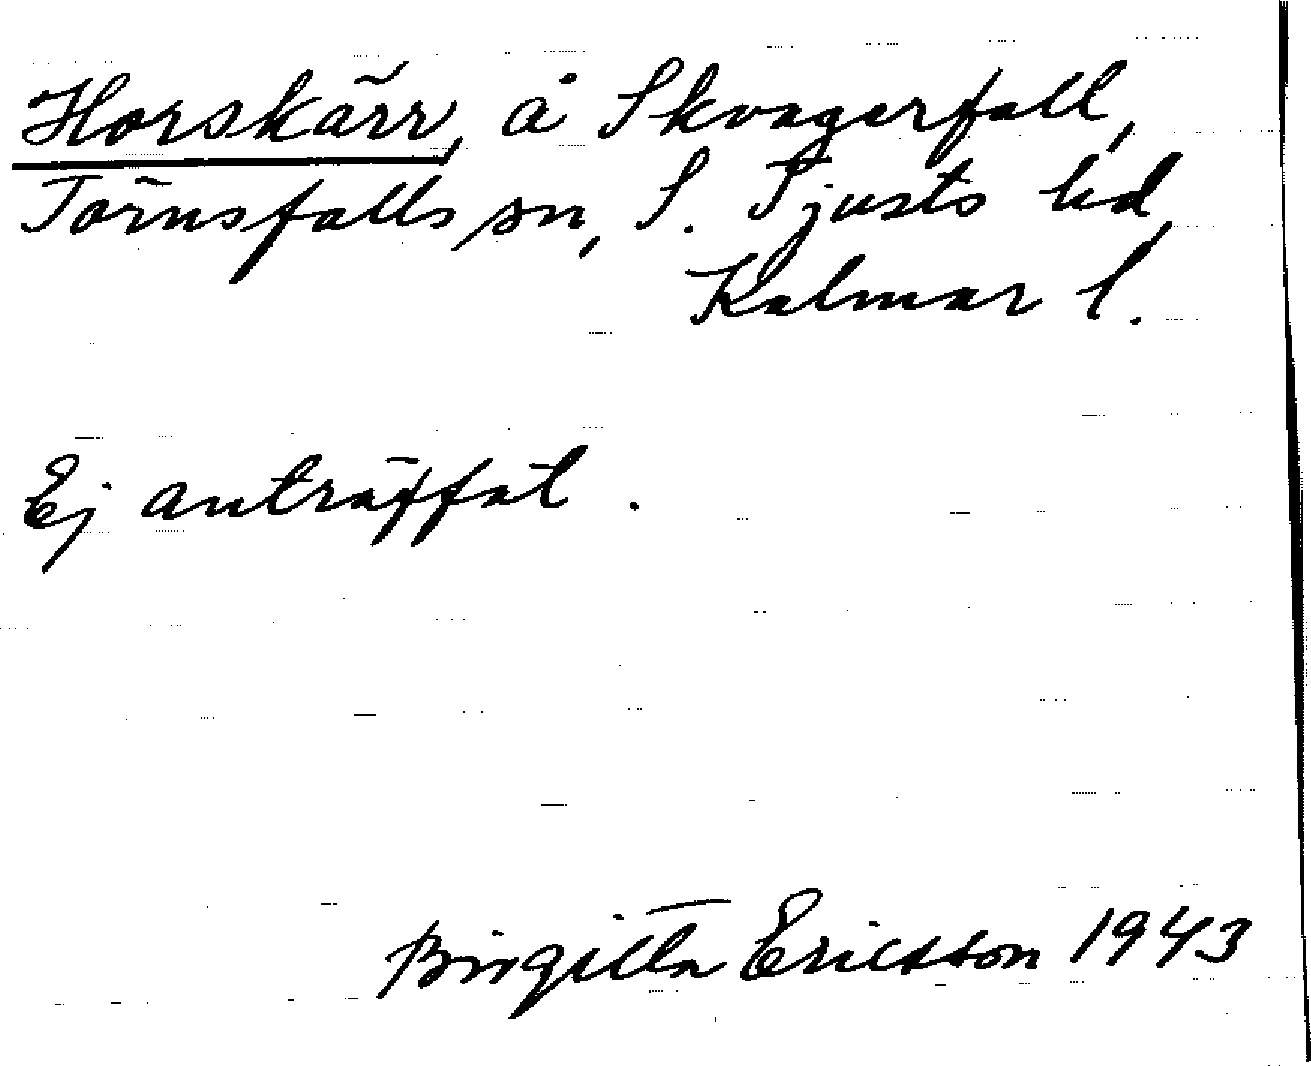 Horskärr, å Skvagerfall,
Törnsfalls sn, S. Tjusts hd,
Kalmar l.
Ej anträffat.
Birgitta Ericsson 1943